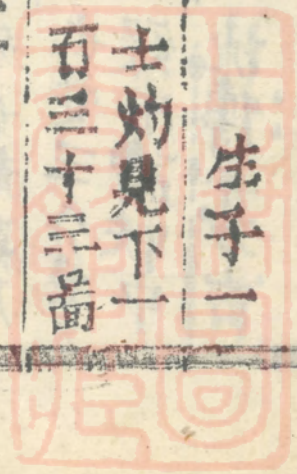 生子一
士灼見下一
右三十三啚